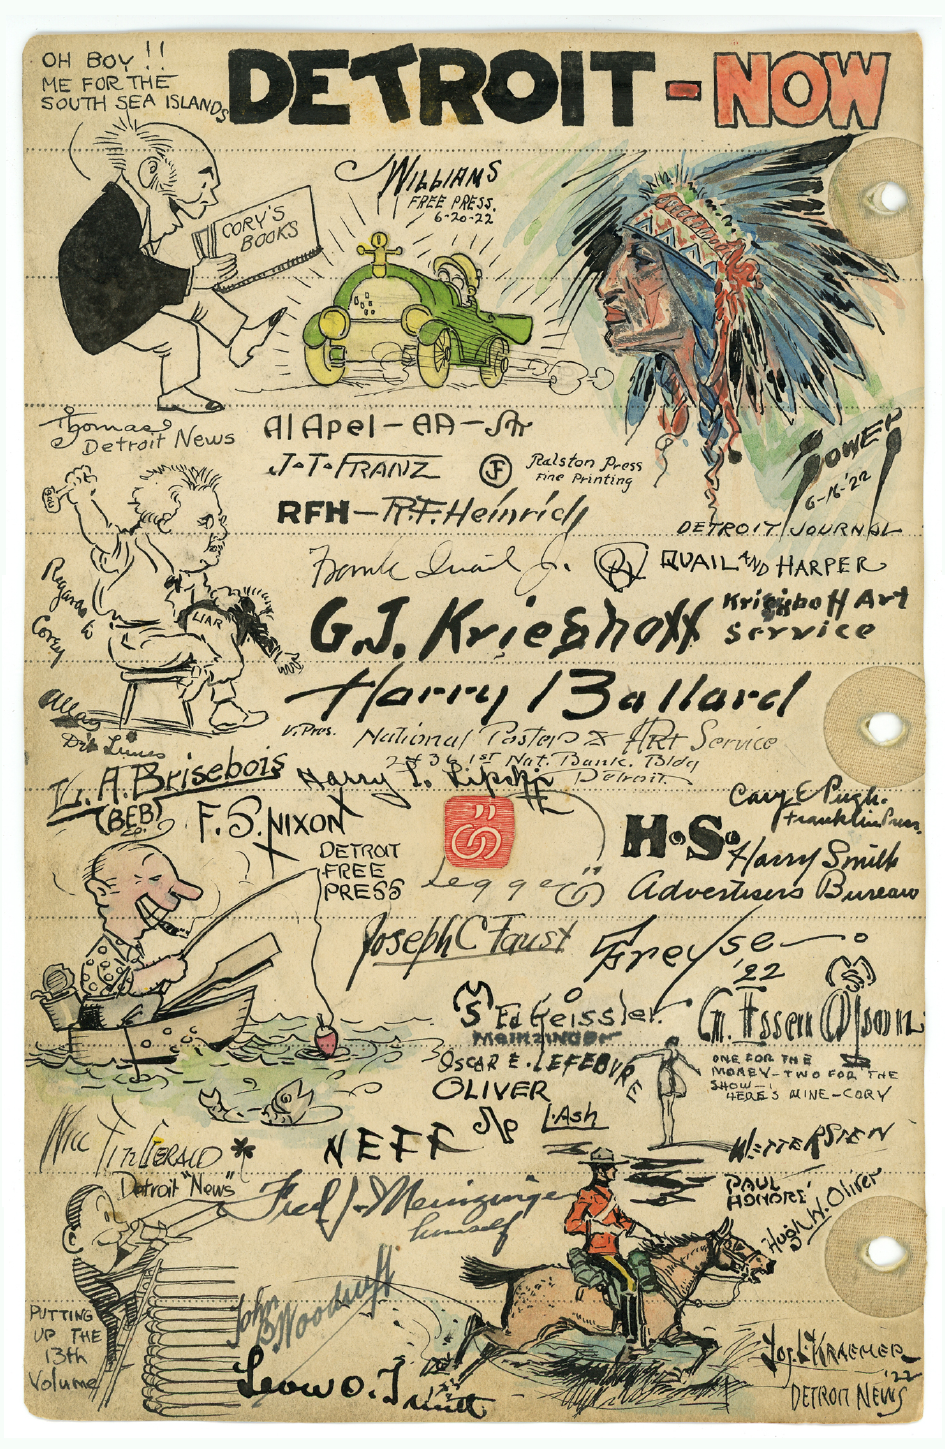 OH BOY!!
ME FOR THE
SOUTH SEA ISLANDS
DETROIT - NOW
CORY'S
BOOKS
WILLIAMS
FREE PRESS.
6-20-22
Thomas
Detroit News
Al Apel - AA - Str
J.T. FRANZ
JF
Ralston Press
Fine Printing
6-16-'22
DETROIT JOURNAL
RFH - R.F. Heinrich
Frank Quail Jr.
Q
QUAIL AND HARPER
Regards to
Corey
LIAR
G.J. Krieghoff
Krieghoff Art
Service
Harry Ballard
V. Pres. National Poster & ARt Service
2436 1st Nat. Bank. Bldg
Detroit.
L.A. Brisebois
(BEB)
Harry L. Lipski
F.S. NIXON
DETROIT
FREE
PRESS
Cary E Pugh.
Franklin Press
H.S.
Harry Smith
Advertisers Bureau
Legge
Joseph C Faust
Freyse
'22
Ed Geissler.
MEINZINGER
G. Essen Olson
OSCAR E. LEFEBVRE
OLIVER
ONE FOR THE
MONEY - TWO FOR THE
SHOW -
HERE'S MINE - CORY
L. Ash
NEFF
Will FitzGerald
Detroit "News"
WETTERSTEIN
PAUL
HONORE'
Hugh W. Oliver
Fred J. Meinzinger
himself
John
Woodruff
PUTTING
UP THE
13th
Volume
Jos. L. KRAEMER
'22
DETROIT NEWS